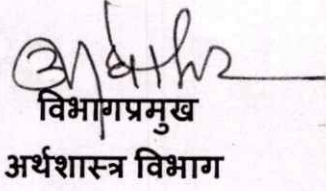 विभागप्रमुख
अर्थशास्त्र विभाग